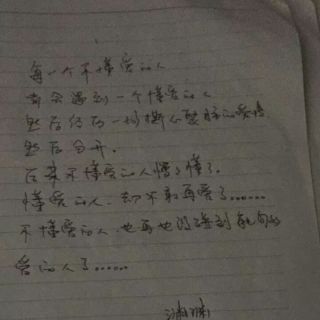 每一个不懂爱的人
都会遇到一个懂爱的人
然后经历一场撕心裂肺的爱情
然后分开.
后来不懂爱的人慢慢懂了.
懂爱的人.却不敢再爱了......
不懂爱的人.也再也没碰到能够的
爱的人了......